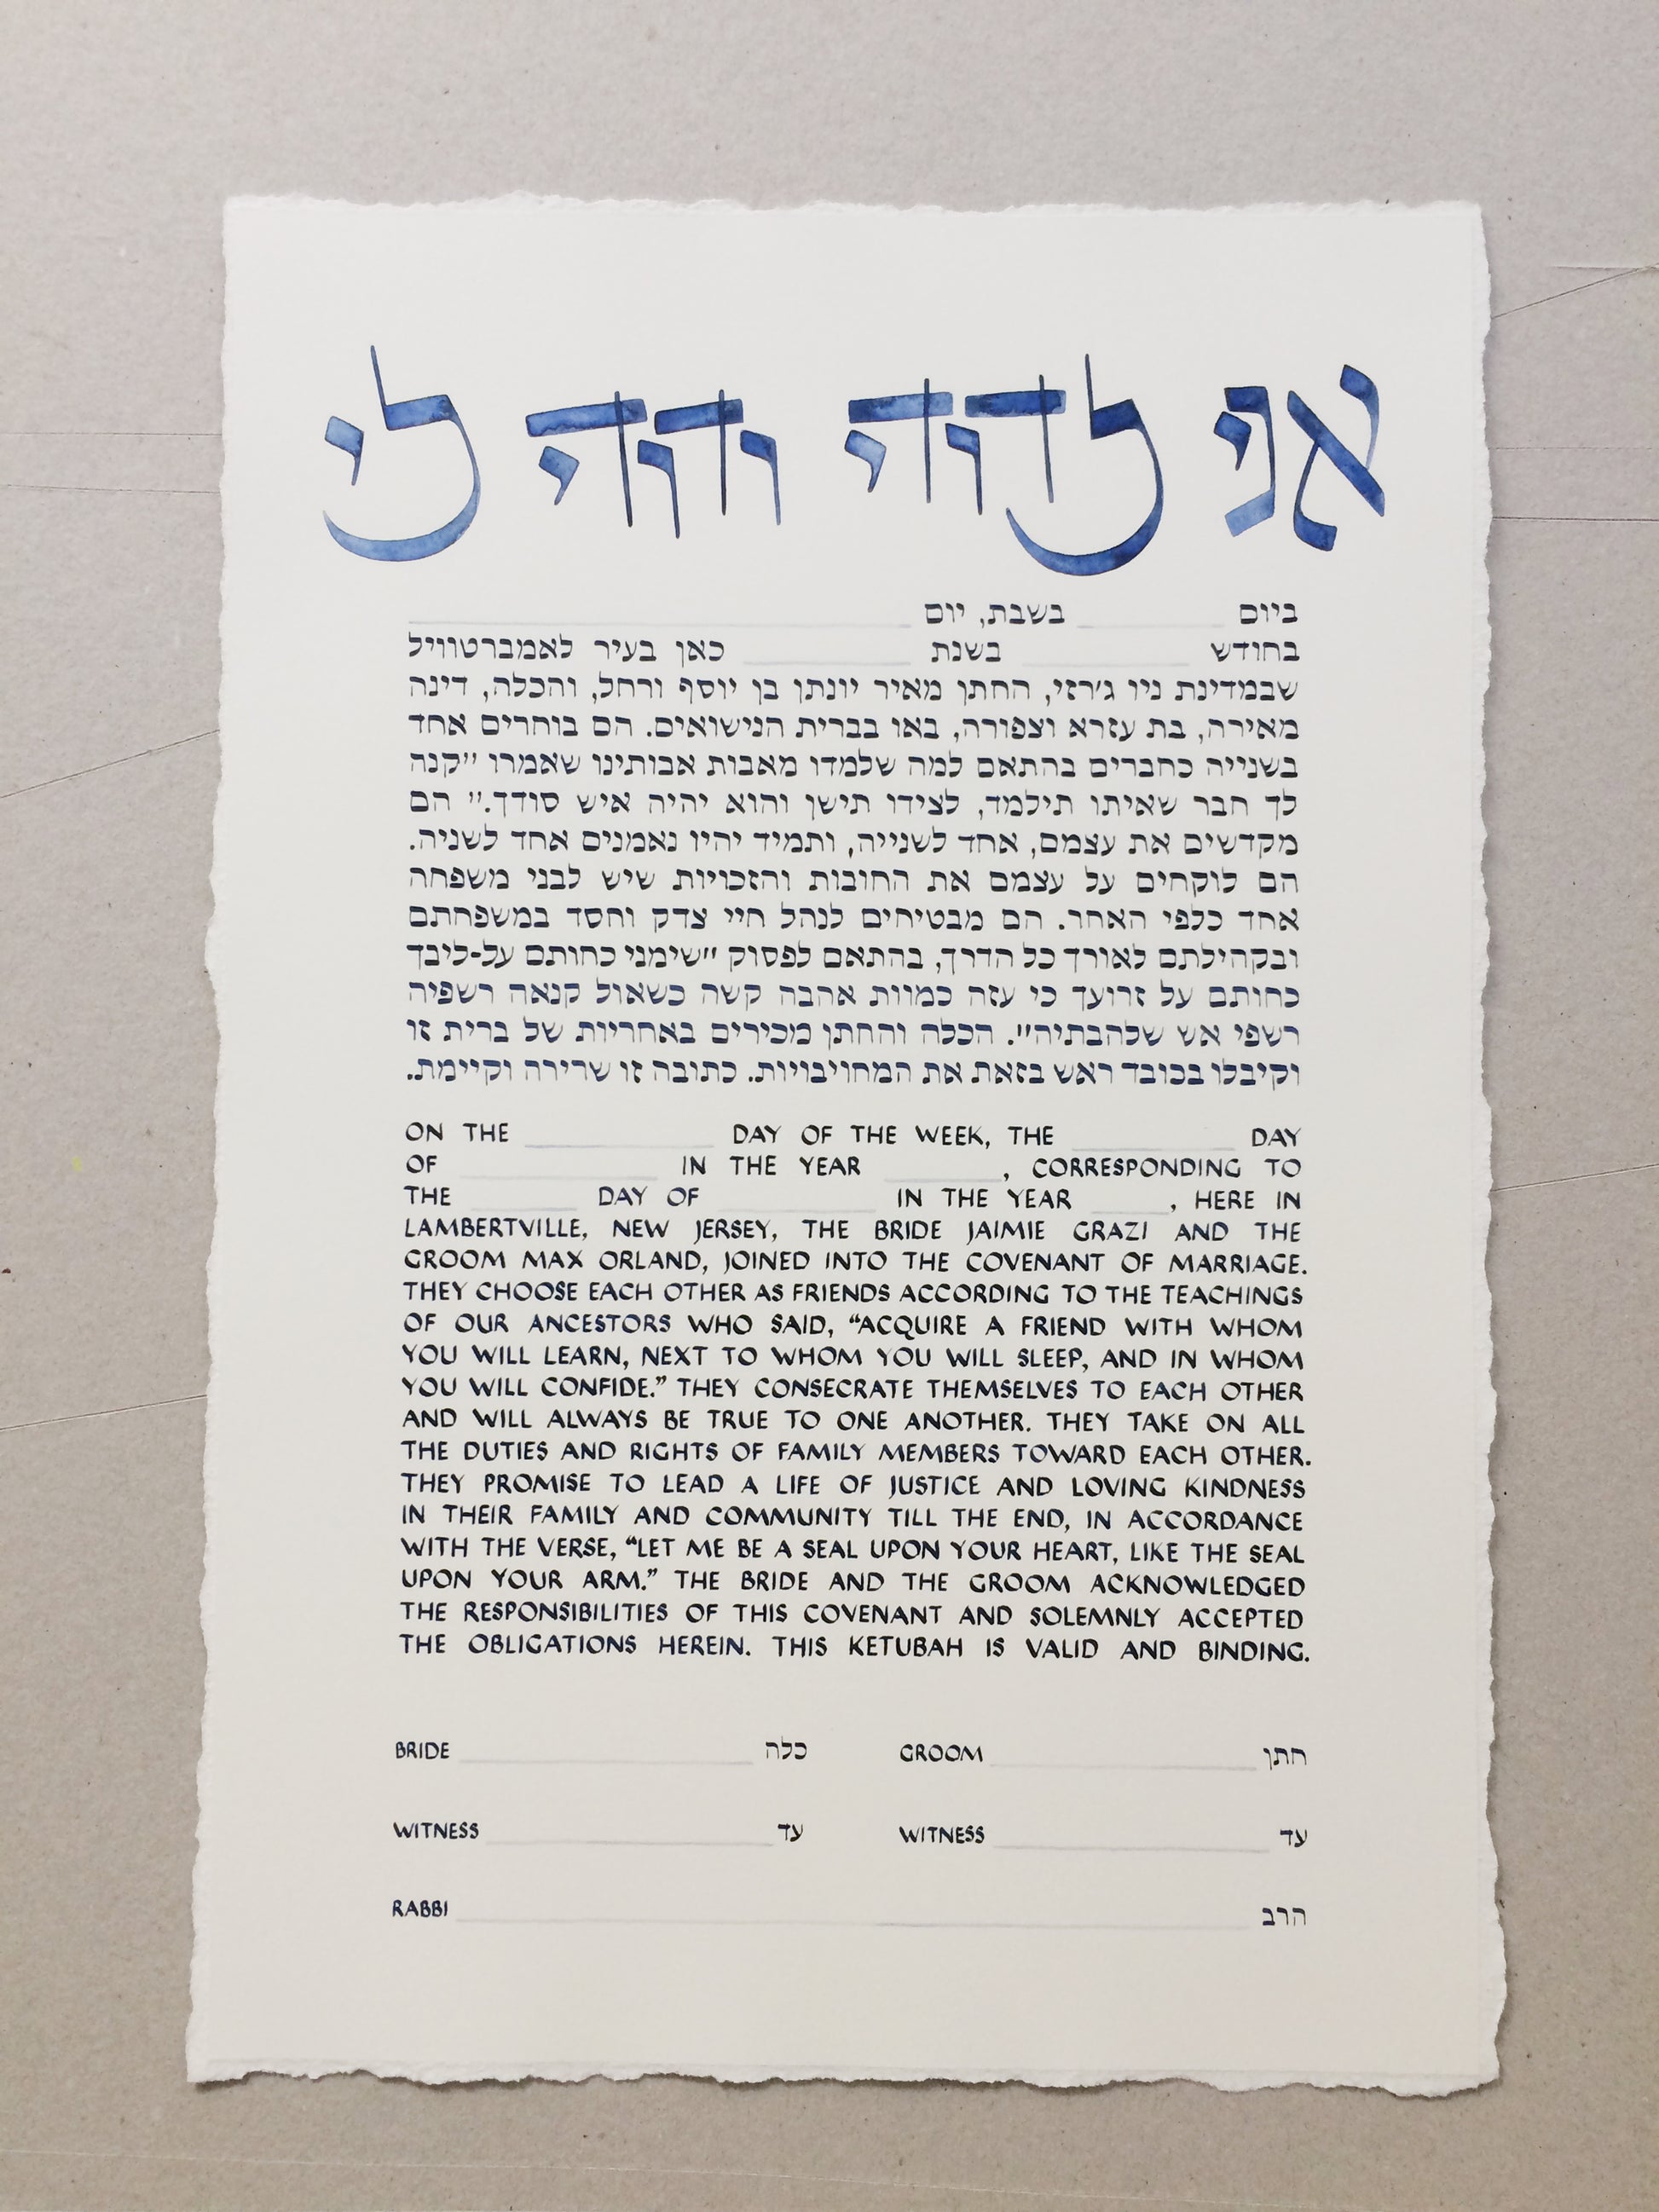 אני לדודי ודודי לי
ביום ____ בשבת, יום ____
בחודש ____ בשנת ____ כאן בעיר לאמברטוויל
שבמדינת ניו ג׳רזי, החתן מאיר יונתן בן יוסף ורחל, והכלה, דינה
מאירה, בת עזרא וצפורה, באו בברית הנישואים. הם בוחרים אחד
בשנייה כחברים בהתאם למה שלמדו מאבות אבותינו שאמרו ״קנה
לך חבר שאיתו תילמד, לצידו תישן והוא יהיה איש סודך.״ הם
מקדשים את עצמם, אחד לשנייה, ותמיד יהיו נאמנים אחד לשניה.
הם לוקחים על עצמם את החובות והזכויות שיש לבני משפחה
אחד כלפי האחר. הם מבטיחים לנהל חיי צדק וחסד במשפחתם
ובקהילתם לאורך כל הדרך, בהתאם לפסוק ״שימני כחותם על-ליבך
כחותם על זרועך כי עזה כמוות אהבה קשה כשאול קנאה רשפיה
רשפי אש שלהבתיה״. הכלה והחתן מכירים באחריות של ברית זו
וקיבלו בכובד ראש בזאת את המחויבויות. כתובה זו שרירה וקיימת.
ON THE ____ DAY OF THE WEEK, THE ____ DAY
OF ____ IN THE YEAR ____, CORRESPONDING TO
THE ____ DAY OF ____ IN THE YEAR ____, HERE IN
LAMBERTVILLE, NEW JERSEY, THE BRIDE JAIMIE GRAZI AND THE
GROOM MAX ORLAND, JOINED INTO THE COVENANT OF MARRIAGE.
THEY CHOOSE EACH OTHER AS FRIENDS ACCORDING TO THE TEACHINGS
OF OUR ANCESTORS WHO SAID, “ACQUIRE A FRIEND WITH WHOM
YOU WILL LEARN, NEXT TO WHOM YOU WILL SLEEP, AND IN WHOM
YOU WILL CONFIDE.” THEY CONSECRATE THEMSELVES TO EACH OTHER
AND WILL ALWAYS BE TRUE TO ONE ANOTHER. THEY TAKE ON ALL
THE DUTIES AND RIGHTS OF FAMILY MEMBERS TOWARD EACH OTHER.
THEY PROMISE TO LEAD A LIFE OF JUSTICE AND LOVING KINDNESS
IN THEIR FAMILY AND COMMUNITY TILL THE END, IN ACCORDANCE
WITH THE VERSE, “LET ME BE A SEAL UPON YOUR HEART, LIKE THE SEAL
UPON YOUR ARM.” THE BRIDE AND THE GROOM ACKNOWLEDGED
THE RESPONSIBILITIES OF THIS COVENANT AND SOLEMNLY ACCEPTED
THE OBLIGATIONS HEREIN. THIS KETUBAH IS VALID AND BINDING.
BRIDE ____ כלה GROOM ____ חתן
WITNESS ____ עד WITNESS ____ עד
RABBI ____ הרב